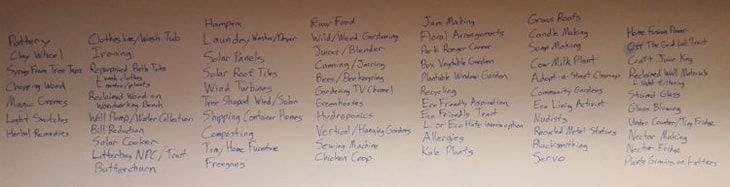 Pottery
Clay Wheel
Syrup From Tree Taps
Chopping Wood
Magic Gnomes
Light Switches
Herbal Remedies
Clothesline/Wash Tub
Ironing
Repurposed Bath Tubs
Reclaimed Wood on
Woodworking Bench
Well Pump/Water Collection
Bill Reduction
Solar Cooker
Littering NPC/Trait
Butterchurn
Hampers
Laundry Washer/Dryer
Solar Panels
Solar Roof Tiles
Wind Turbines
Tree Shaped Wind/Solar
Shipping Container Homes
Composting
Tiny Home Furniture
Freegans
Raw Food
Wild/Weed Gardening
Juicer/Blender
Canning/Jarring
Bees/Beekeeping
Gardening TV Channel
Greenhouses
Hydroponics
Vertical/Hanging Gardens
Sewing Machine
Chicken Coop
Jam Making
Floral Arrangements
Park Ranger Career
Box Vegetable Garden
Plantable Window Garden
Recycling
Eco Friendly Aspiration
Eco Friendly Trait
Allergies
Kale Plants
Green Roofs
Candle Making
Soap Making
Cow Milk Plant
Adopt-a Street Cleanup
Community Gardens
Eco Living Activist
Nudists
Recycled Metal Statues
Blacksmithing
Servo
Home Fusion Power
Off The Grid Lot Trait
Craft June Keg
Reclaimed Wall Materials
Stained Glass
Glass Blowing
Under Counter/Tiny Fridge
Nectar Making
Nectar Fridge
Plants Growing on